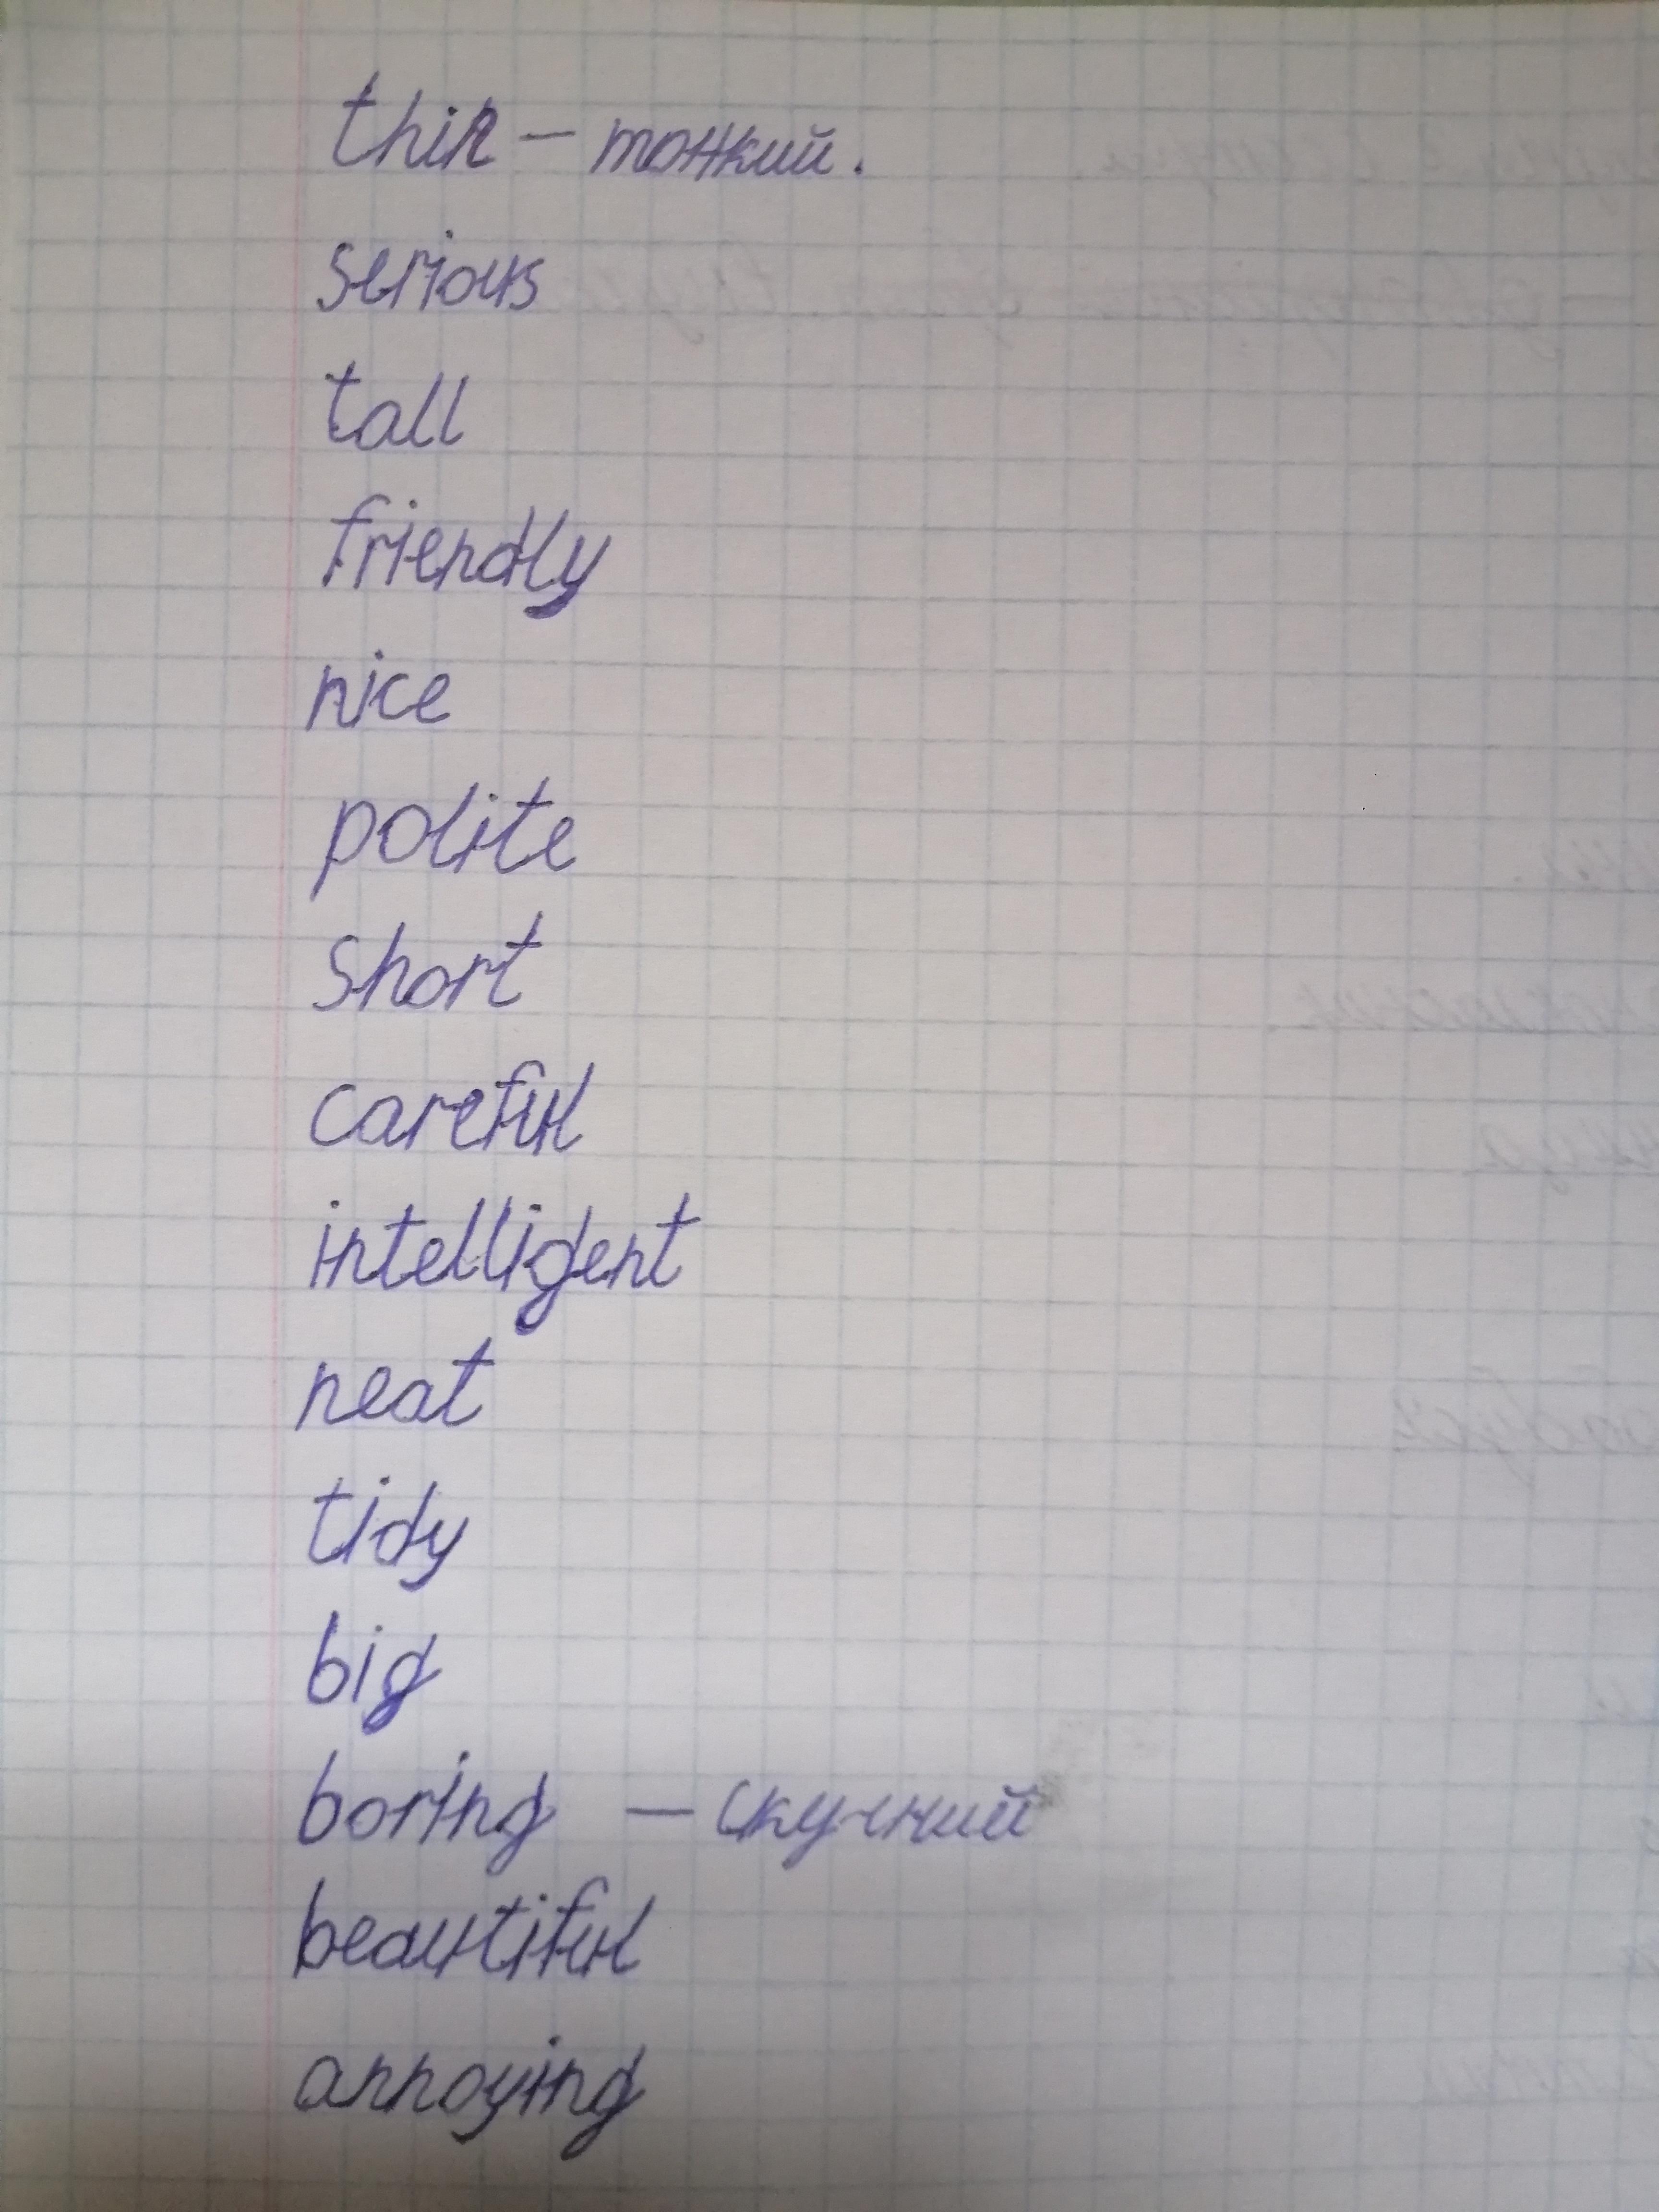 thin – тонкий.
serious
tall
friendly
nice
polite
short
careful
intelligent
neat
tidy
big
boring – скучний
beautiful
annoying